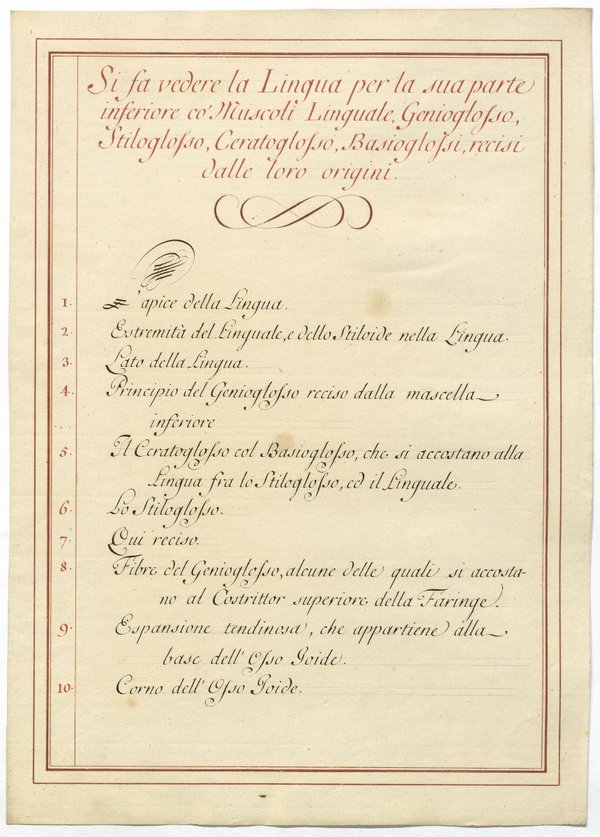 Si fa vedere la Lingua per la sua parte
inferiore co' Muscoli Linguale, Genioglosso,
Stiloglosso, Ceratoglosso, Basioglossi, recisi
dalle loro origini.
1. L'apice della Lingua.
2. Estremità del Linguale, e dello Stiloide nella Lingua.
3. Lato della Lingua.
4. Principio del Genioglosso reciso dalla mascella
inferiore
5. Il Ceratoglosso col Basioglosso, che si accostano alla
Lingua fra lo Stiloglosso, ed il Linguale.
6. Lo Stiloglosso.
7. Qui reciso.
8. Fibre del Genioglosso, alcune delle quali si accosta-
no al Costrittor superiore della Faringe.
9. Espansione tendinosa, che appartiene alla
base dell'Osso Joide.
10. Corno dell'Osso Joide.